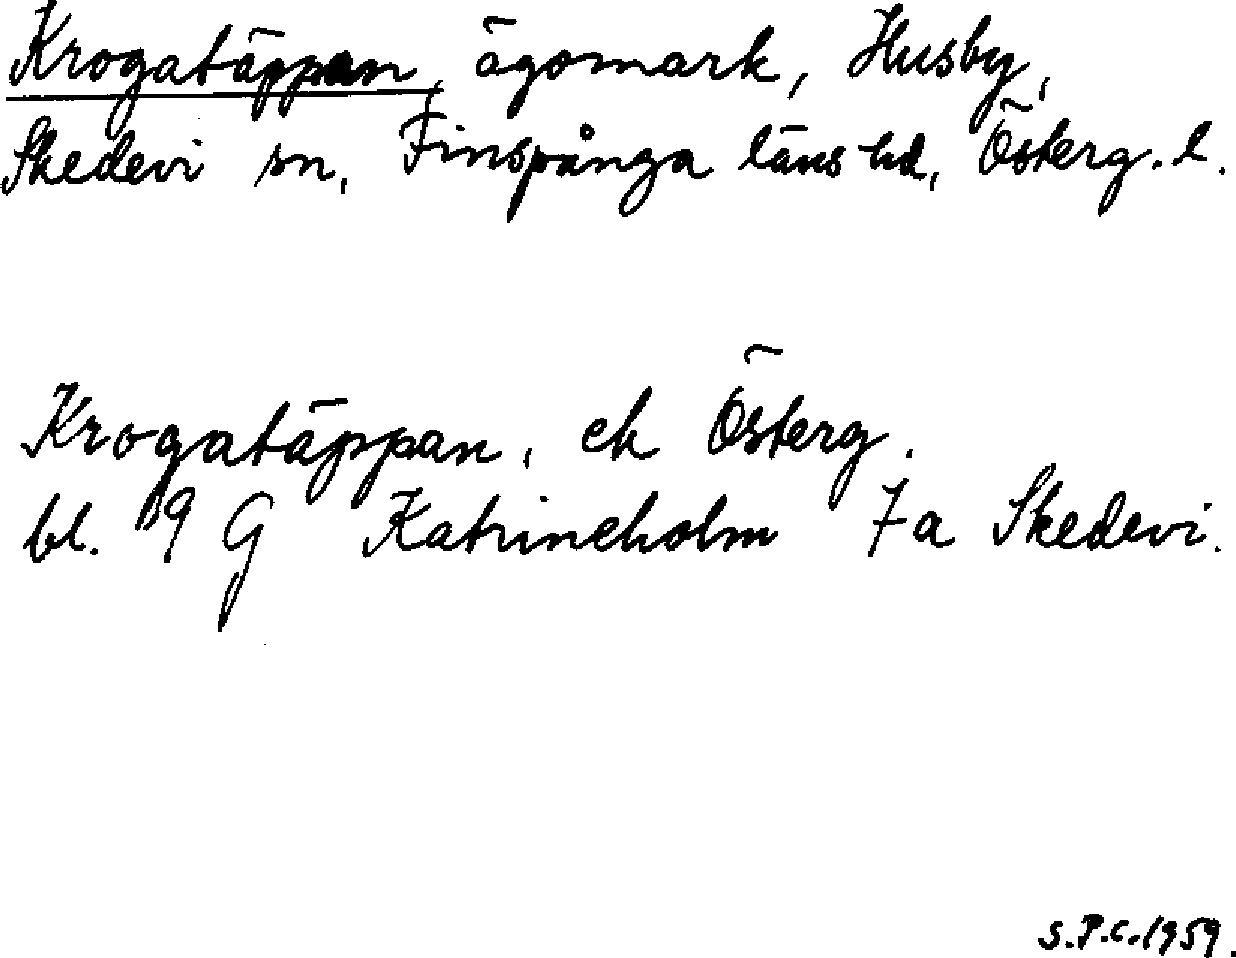 Krogatäppan, ägomark, Husby,
Skedevi sn, Finspånga läns hd, Österg. l.
Krogatäppan, ek Österg.
bl. 9 G Katrineholm 7a Skedevi.
S.P.C. 1959.